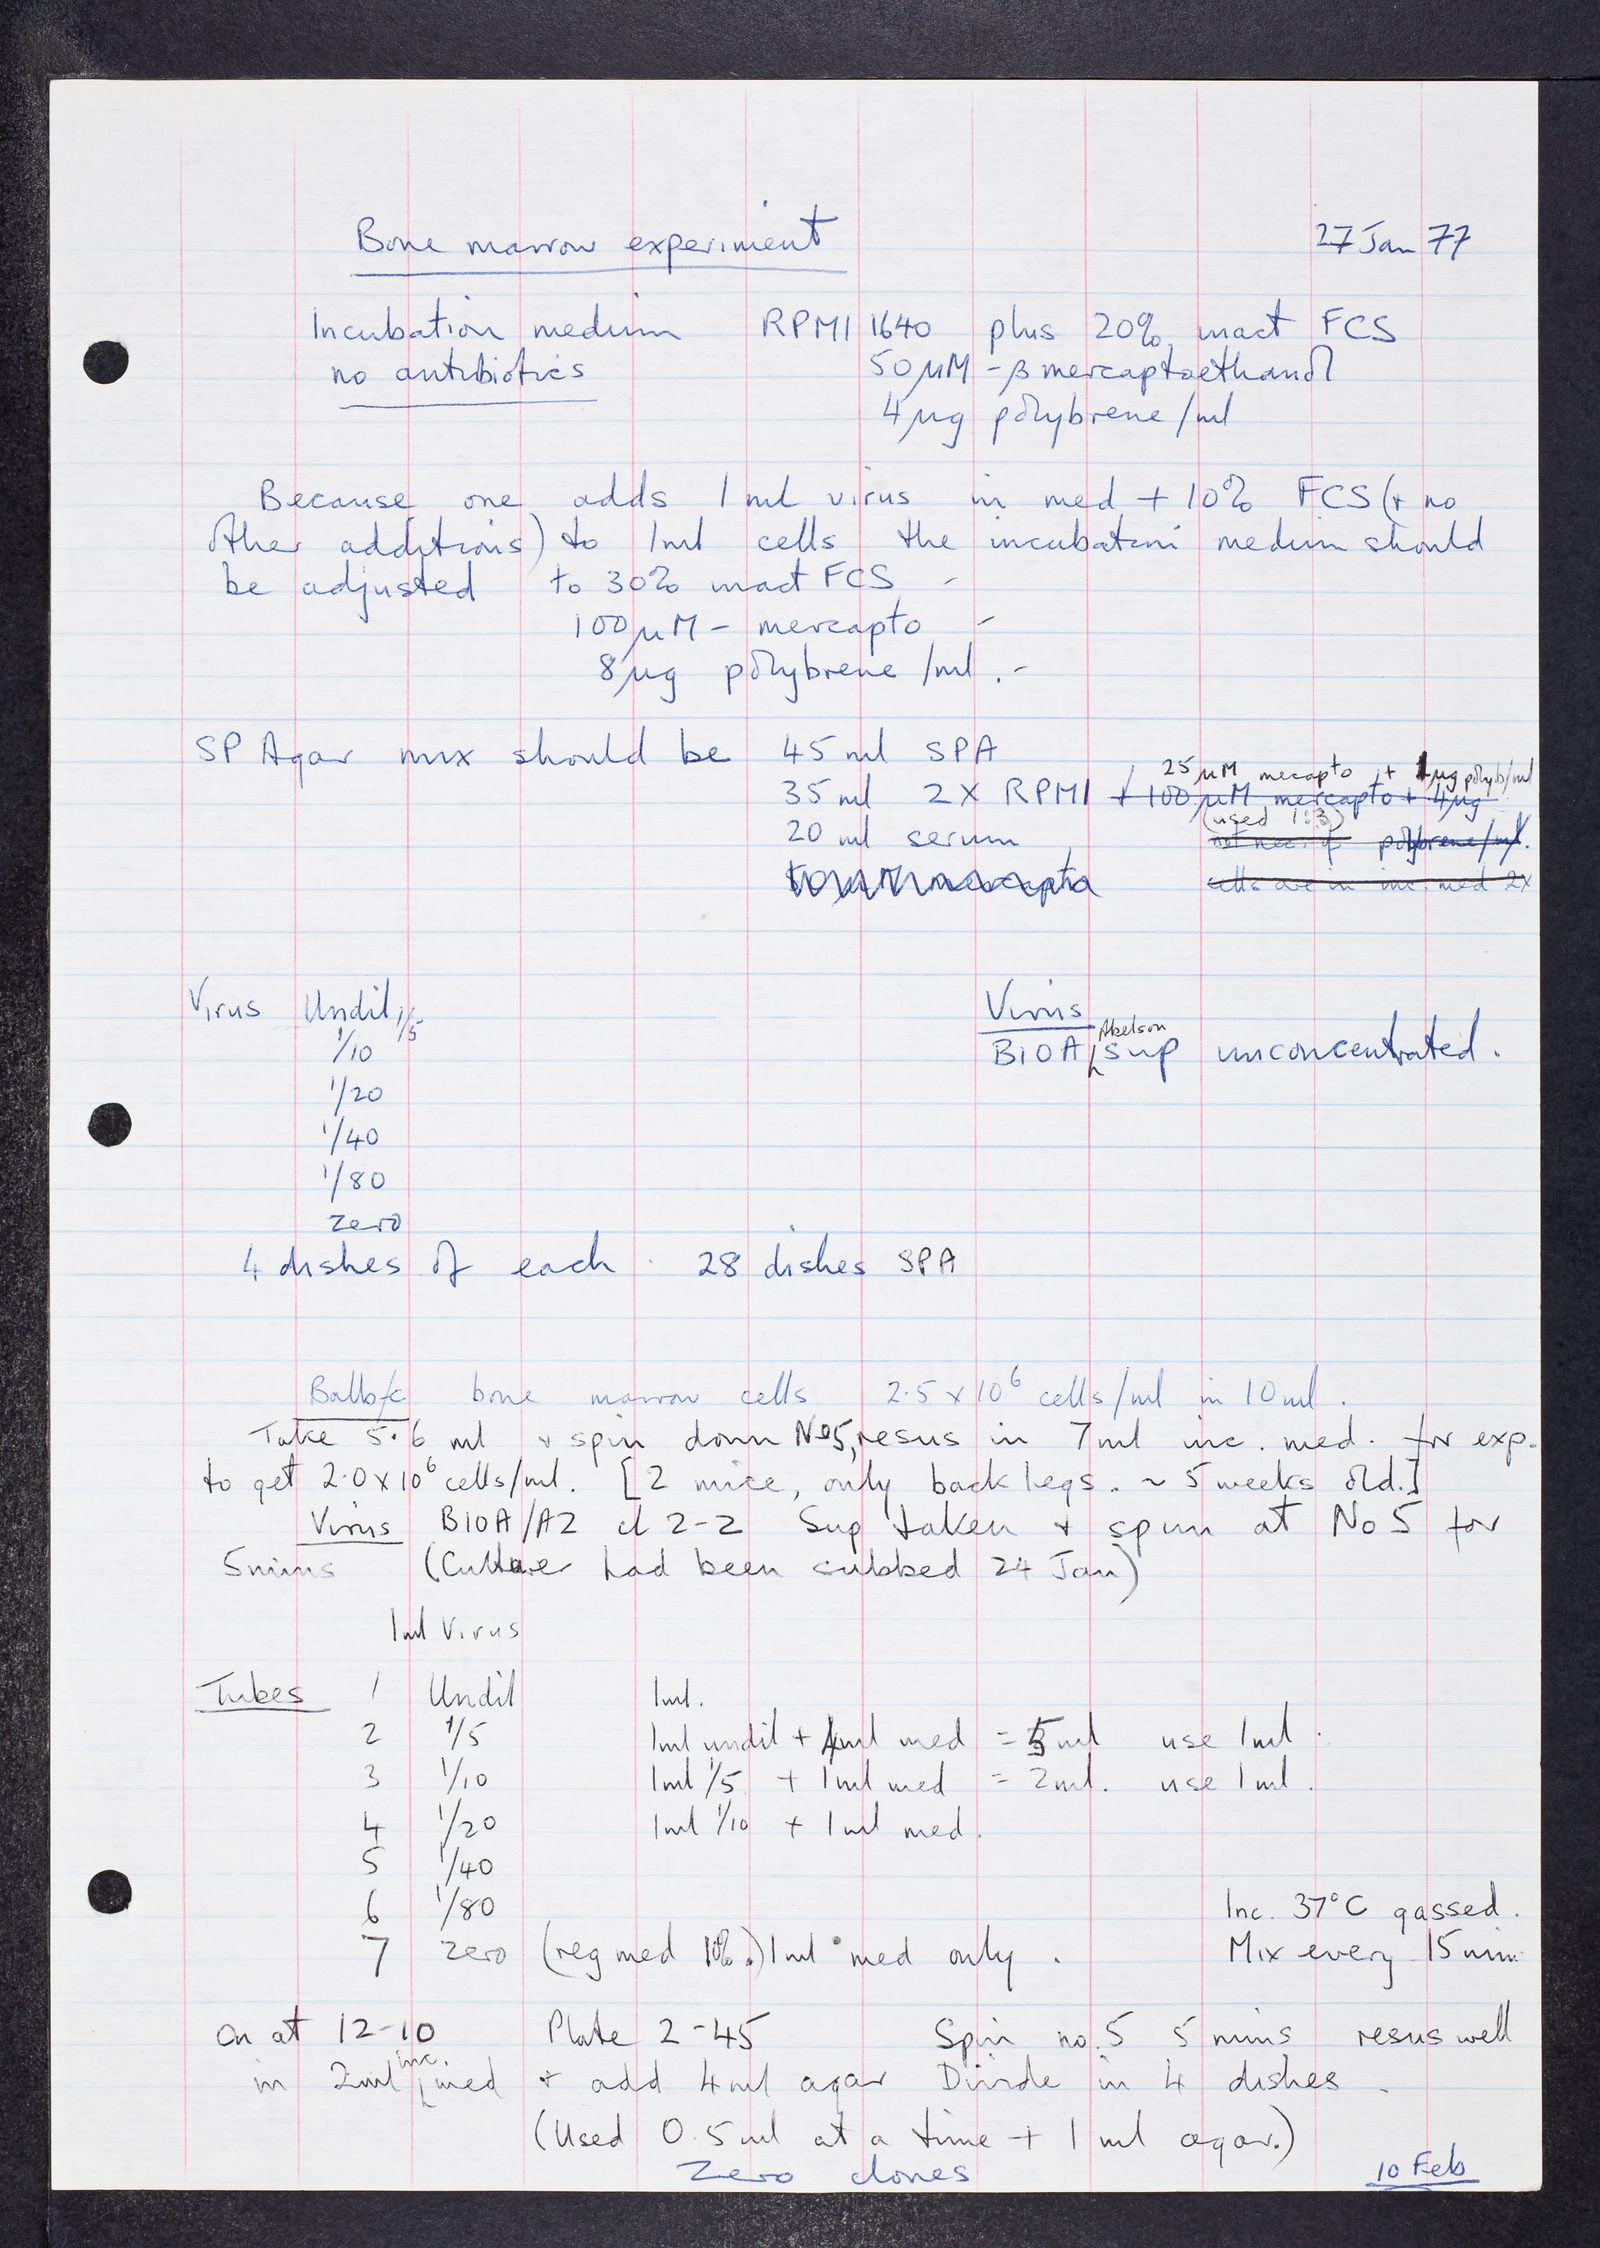 Bone marrow experiment 27 Jan 77
Incubation medium RPMI 1640 plus 20% inact FCS
no antibiotics 50 µM - β mercaptoethanol
4 µg polybrene/ml
Because one adds 1 ml virus in med + 10% FCS (+ no
other additions) to 1ml cells the incubation medium should
be adjusted to 30% inact FCS -
100 µM - mercapto -
8 µg polybrene /ml. -
SP Agar mix should be 45 ml SPA
25 µM mecapto + 1µg polyb/ml
35 ml 2X RPMI + 100 µM mercapto + 4µg
(used 1:3)
20 ml serum not nec. if polybrene/ml.
cells are in inc. med 2x
Virus Undil 1/5 Virus
1/10 B10A Abelson sup unconcentrated.
1/20
1/40
1/80
Zero
4 dishes of each. 28 dishes SPA
Balb/c bone marrow cells 2.5 x 10⁶ cells/ml in 10 ml.
Take 5.6 ml + spin down No5, resus in 7ml inc. med. for exp.
to get 2.0 x 10⁶ cells/ml. [2 mice, only back legs. ~ 5 weeks old.]
Virus B10A/A2 cl 2-2 Sup taken + spun at No 5 for
5 mins (Culture had been subbed 24 Jan)
1ml Virus
Tubes 1 Undil 1ml.
2 1/5 1ml undil + 4ml med = 5 ml use 1ml.
3 1/10 1ml 1/5 + 1ml med = 2ml. use 1ml.
4 1/20 1ml 1/10 + 1ml med.
5 1/40
6 1/80 Inc. 37°C gassed.
7 Zero (reg med 10%.) 1ml med only. Mix every 15 min.
On at 12-10 Plate 2-45 Spin no. 5 5 mins resus well
in 2ml inc. med + add 4ml agar Divide in 4 dishes.
(Used 0.5 ml at a time + 1 ml agar.)
Zero clones 10 Feb